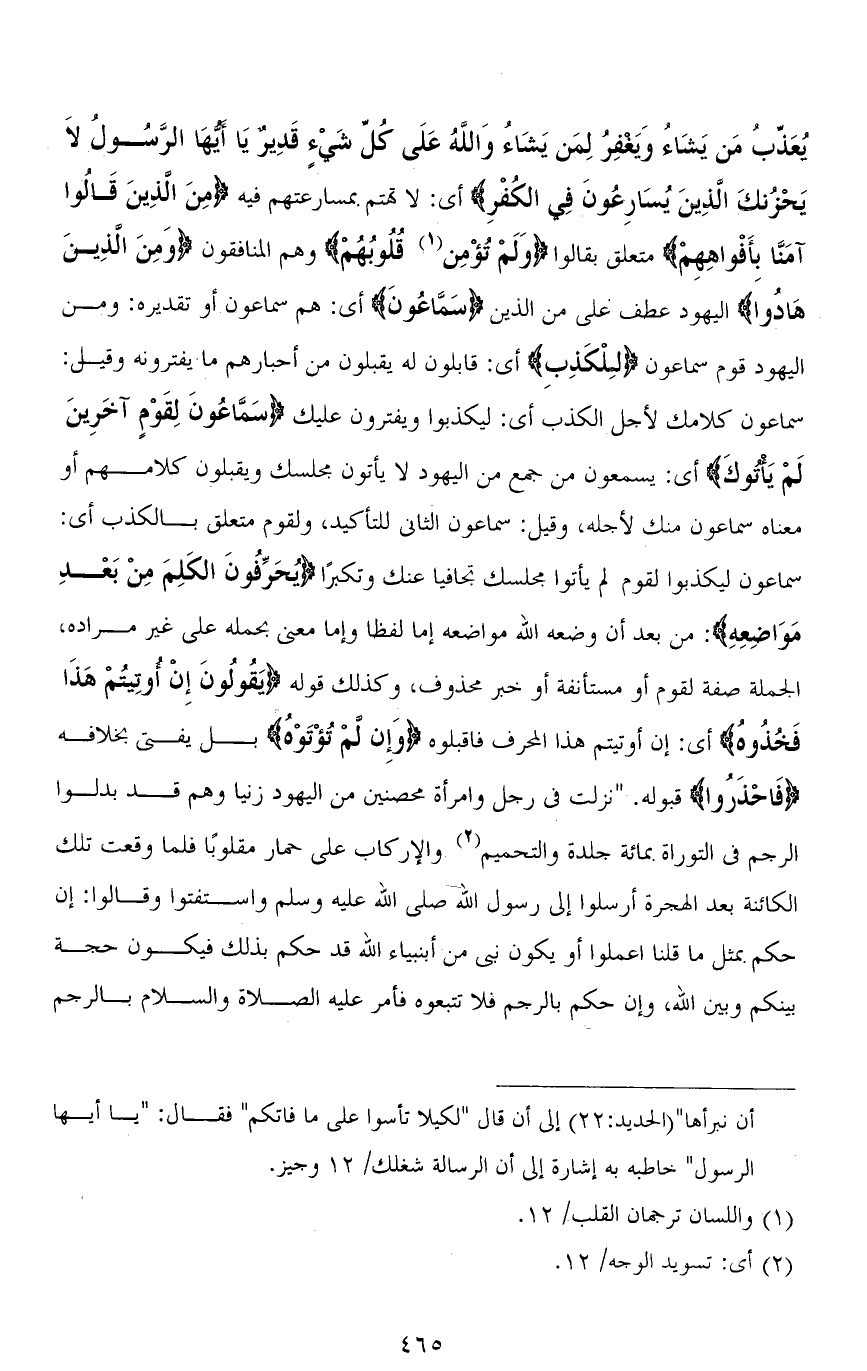 يُعَذِّبُ مَن يَشَاءُ وَيَغْفِرُ لِمَن يَشَاءُ وَاللَّهُ عَلَى كُلِّ شَيْءٍ قَدِيرٌ يَا أَيُّهَا الرَّسُولُ لاَ
يَحْزُنكَ الَّذِينَ يُسَارِعُونَ فِي الكُفْرِ﴾ أى: لا تهتم بمسارعتهم فيه ﴿مِنَ الَّذِينَ قَالُوا
آمَنَّا بِأَفْواهِهِمْ﴾ متعلق بقالوا ﴿وَلَمْ تُؤْمِن(١) قُلُوبُهُمْ﴾ وهم المنافقون ﴿وَمِنَ الَّذِينَ
هَادُوا﴾ اليهود عطف على من الذين ﴿سَمَّاعُونَ﴾ أى: هم سماعون أو تقديره: ومن
اليهود قوم سماعون ﴿لِلْكَذِبِ﴾ أى: قابلون له يقبلون من أحبارهم ما يفترونه وقيل:
سماعون كلامك لأجل الكذب أى: ليكذبوا ويفترون عليك ﴿سَمَّاعُونَ لِقَوْمٍ آخَرِينَ
لَمْ يَأْتُوكَ﴾ أى: يسمعون من جمع من اليهود لا يأتون مجلسك ويقبلون كلامهم أو
معناه سماعون منك لأجله، وقيل: سماعون الثانى للتأكيد، ولقوم متعلق بالكذب أى:
سماعون ليكذبوا لقوم لم يأتوا مجلسك تجافيا عنك وتكبرًا ﴿يُحَرِّفُونَ الكَلِمَ مِنْ بَعْدِ
مَوَاضِعِهِ﴾: من بعد أن وضعه الله مواضعه إما لفظا وإما معنى بحمله على غير مراده،
الجملة صفة لقوم أو مستأنفة أو خبر محذوف، وكذلك قوله ﴿يَقُولُونَ إِنْ أُوتِيتُمْ هَذَا
فَخُذُوهُ﴾ أى: إن أوتيتم هذا المحرف فاقبلوه ﴿وَإِن لَّمْ تُؤْتَوْهُ﴾ بل يفتى بخلافه
﴿فَاحْذَرُوا﴾ قبوله. "نزلت فى رجل وامرأة محصنين من اليهود زنيا وهم قد بدلوا
الرجم فى التوراة بمائة جلدة والتحميم(٢) والإركاب على حمار مقلوبًا فلما وقعت تلك
الكائنة بعد الهجرة أرسلوا إلى رسول الله صلى الله عليه وسلم واستفتوا وقالوا: إن
حكم بمثل ما قلنا اعملوا أو يكون نبى من أبنبياء الله قد حكم بذلك فيكون حجة
بينكم وبين الله، وإن حكم بالرجم فلا تتبعوه فأمر عليه الصلاة والسلام بالرجم
أن نبرأها"(الحديد:٢٢) إلى أن قال "لكيلا تأسوا على ما فاتكم" فقال: "يا أيها
الرسول" خاطبه به إشارة إلى أن الرسالة شغلك/ ١٢ وجيز.
(١) واللسان ترجمان القلب/ ١٢.
(٢) أى: تسويد الوجه/ ١٢.
٤٦٥